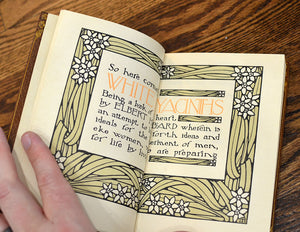 So here com
WHITE YACINTHS
Being a heart
by ELBERT BARD wherein is
an attempt to forth ideas and
ideals for the terment of men,
eke women, are preparing
for life by